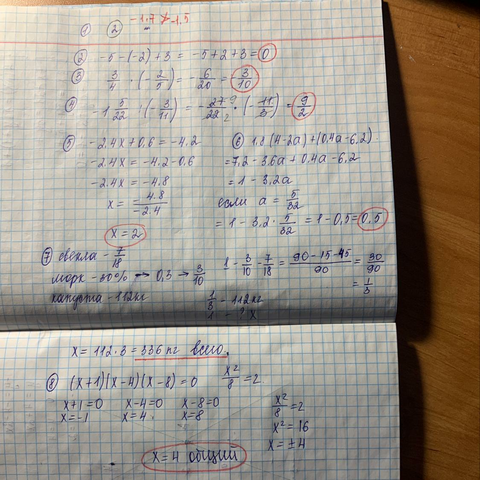 ① ② -1.7 > -1.5
② -5-(-2)+3 = -5+2+3 = 0
③ 3/4 · (-2/5) = -6/20 = 3/10
④ -1 5/22 : (-3/11) = -27/22 · (-11/3) = 9/2
⑤ -2.4x+0,6 = -4.2
-2.4x = -4.2-0.6
-2.4x = -4.8
x = -4.8/-2.4
x = 2
⑥ 1.8(4-2a)+(0.4a-6,2)
=7,2-3.6a+0.4a-6.2
=1-3,2a
если a = 5/32
= 1-3,2 · 5/32 = 1-0,5 = 0,5
⑦ свекла - 7/18
морк - 30% → 0,3 → 3/10
капуста - 112кг
1 - 3/10 - 7/18 = 90-15-45/90 = 30/90
= 1/3
1/3 - 112кг
1 - ? x
x = 112·3 = 336 кг всего.
⑧ (x+1)(x-4)(x-8)=0 x²/8 = 2
x+1=0 x-4=0 x-8=0
x=-1 x=4 x=8
x²/8 = 2
x² = 16
x = ±4
x=4 общий